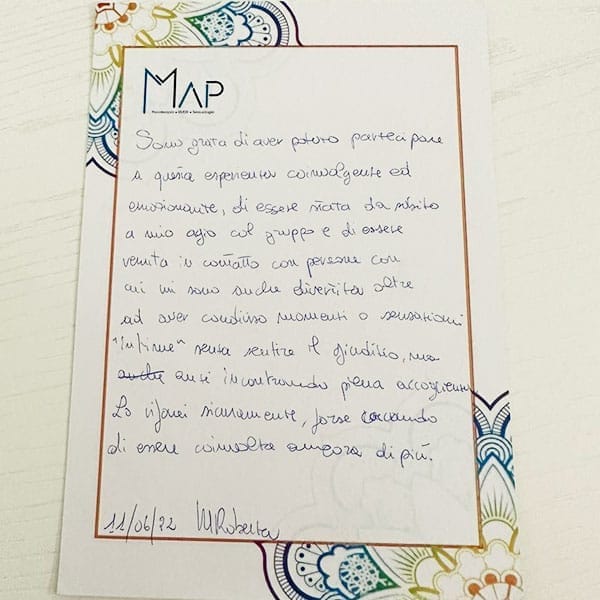 MAP
Sono grata di aver potuto partecipare
a questa esperienza coinvolgente ed
emozionante, di essere stata da subito
a mio agio col gruppo e di essere
venuta in contatto con persone con
cui mi sono anche divertita oltre
ad aver condiviso momenti o sensazioni
"intime" senza sentire il giudizio, ma
anche anzi incontrando piena accoglienza.
Lo rifarei sicuramente, forse cercando
di essere coinvolta ancora di più.
11/06/22 MRoberta